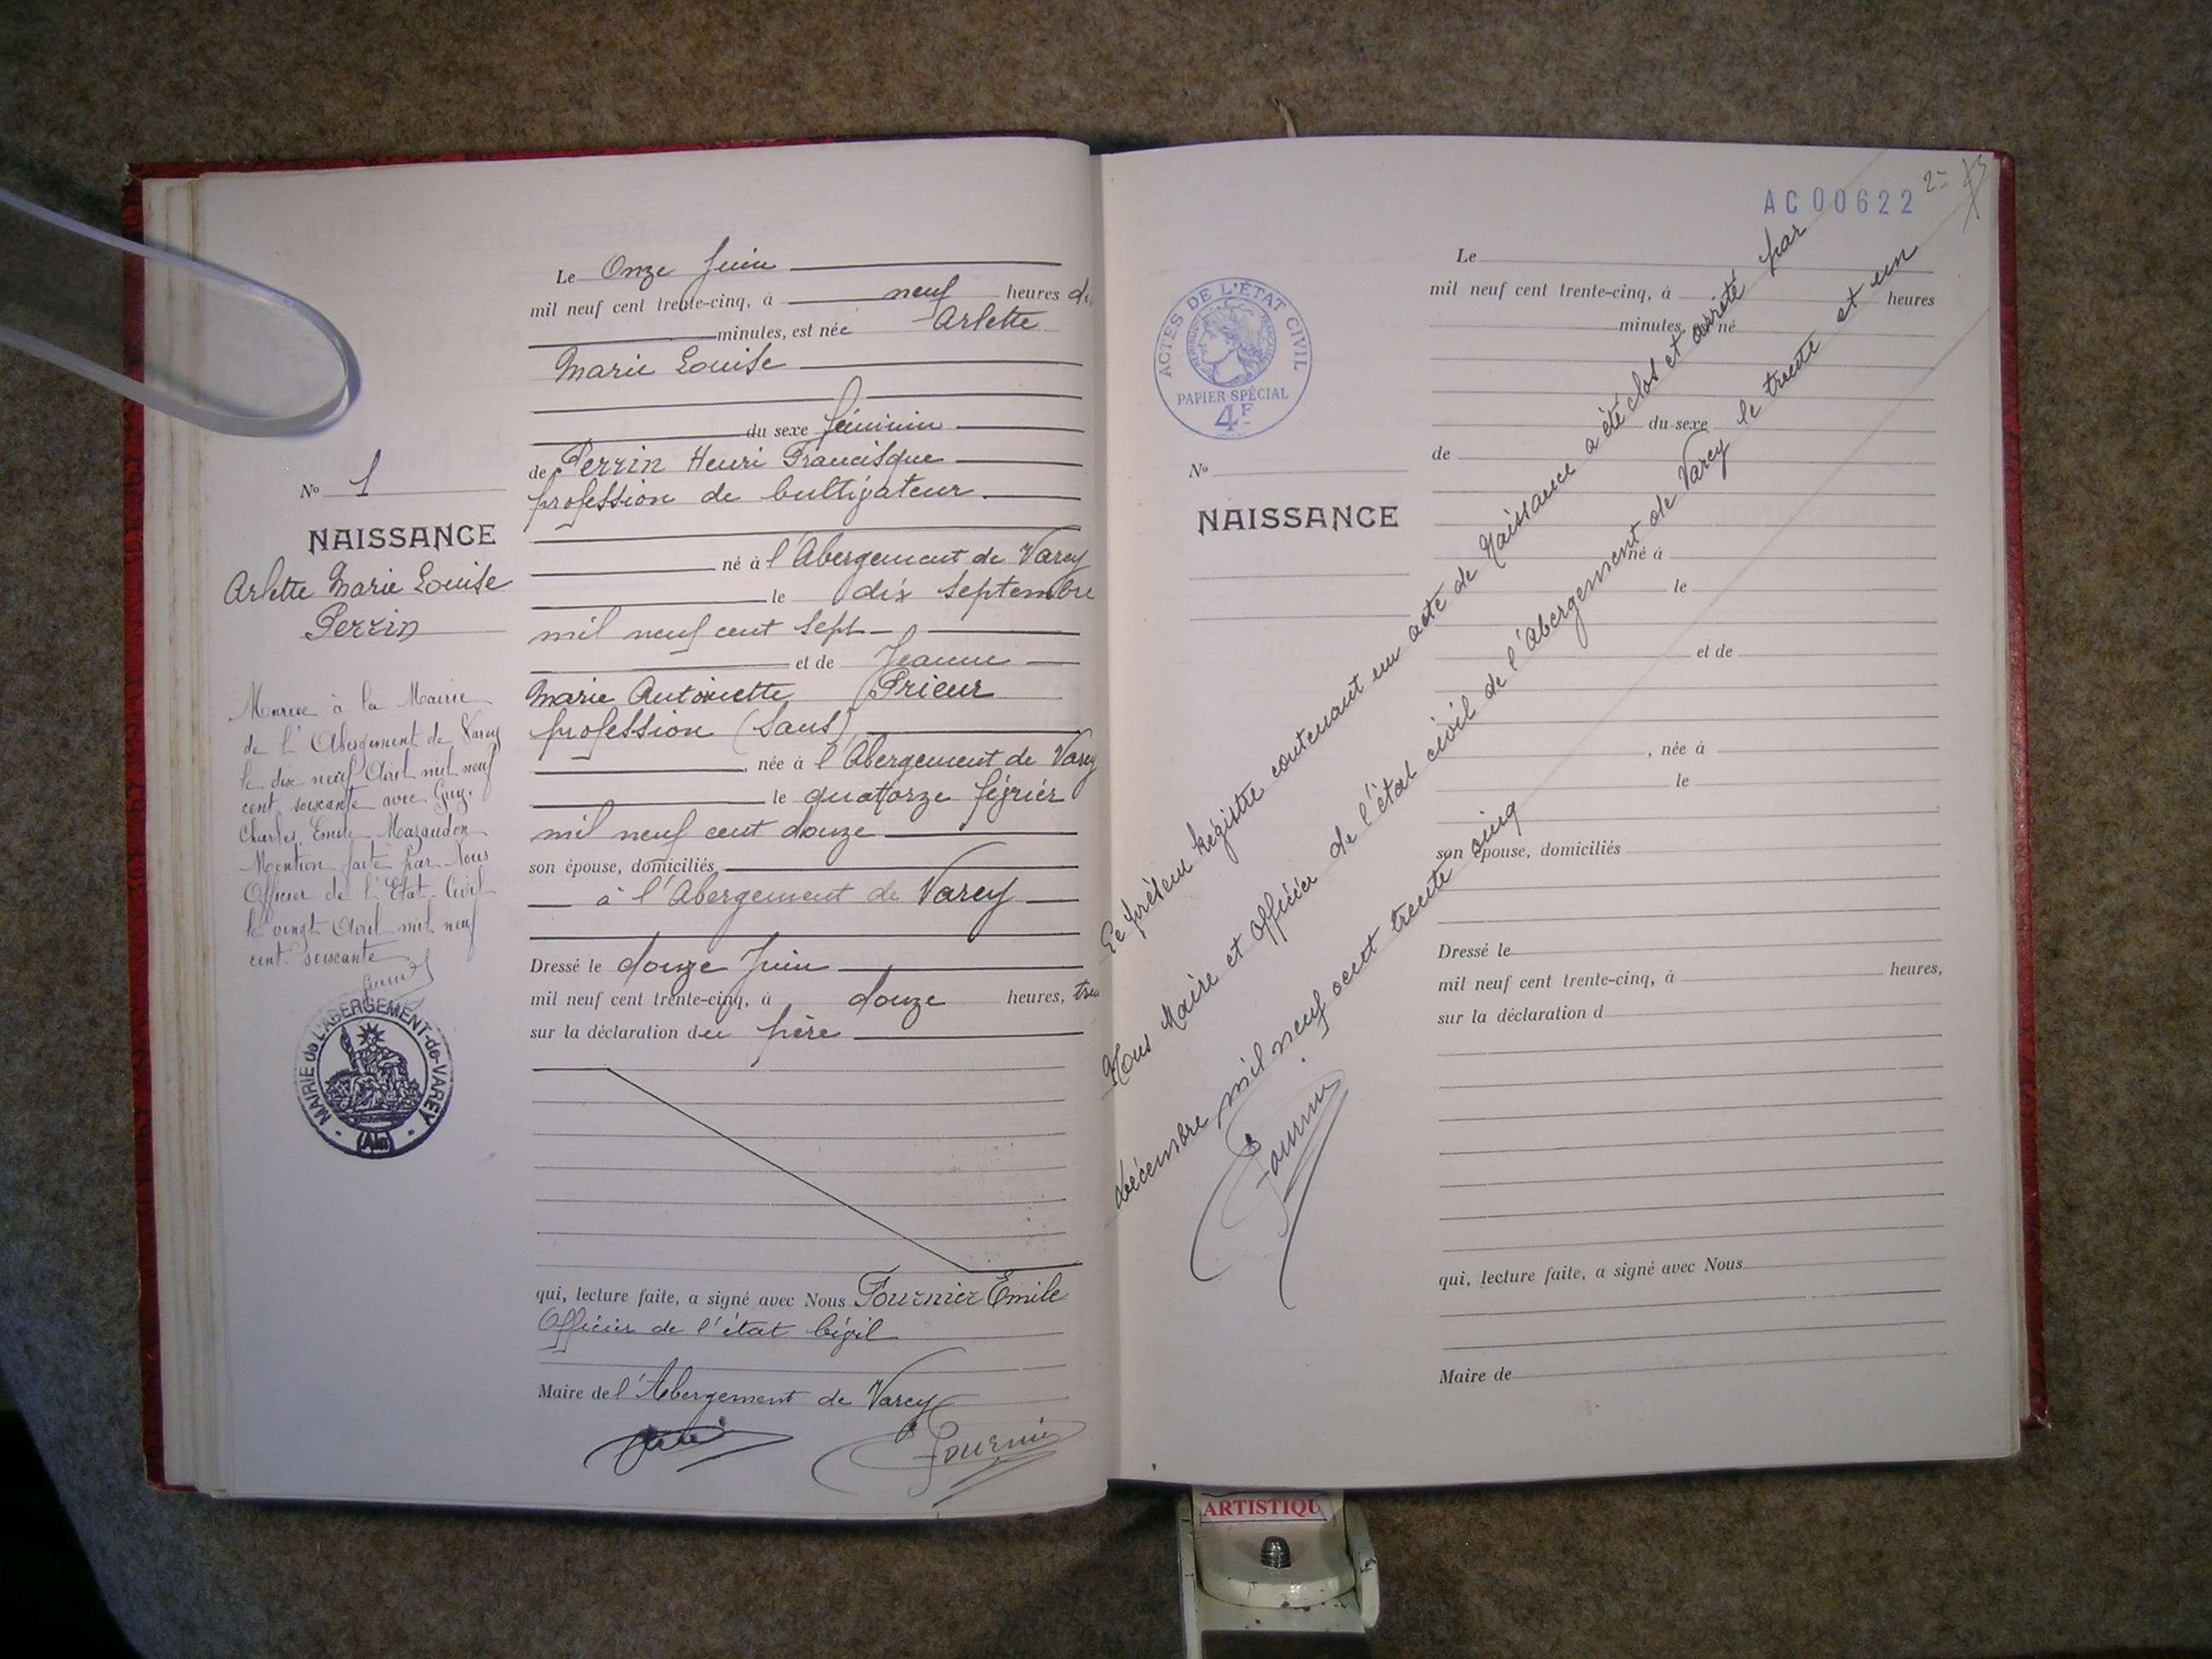 Le Onze Juin
mil neuf cent trente-cinq, à neuf heures
minutes, est née Arlette
Marie Louise
du sexe féminin
de Perrin Henri Francisque
profession de cultivateur
né à l'Abergement de Varey
le dix septembre
mil neuf cent sept
et de Jeanne
Marie Antoinette Prieur
profession (sans)
, née à l'Abergement de Varey
le quatorze février
mil neuf cent douze
son épouse, domiciliés
à l'Abergement de Varey
Dressé le douze Juin
mil neuf cent trente-cinq, à douze heures,
sur la déclaration du père
qui, lecture faite, a signé avec Nous Fournier Emile
Officier de l'état civil
Maire de l'Abergement de Varey
Fournier
No 1
NAISSANCE
Arlette Marie Louise
Perrin
Mariée à la Mairie
de l'Abergement de Varey
le dix neuf Avril mil neuf
cent soixante avec Guy.
Charles, Emile Mazaudon
Mention faite par Nous
Officier de l'Etat-Civil
le vingt Avril mil neuf
cent soixante
MAIRIE de L'ABERGEMENT-de-VAREY
(Ain)
AC00622
ACTES DE L'ÉTAT CIVIL
RÉPUBLIQUE FRANÇAISE
PAPIER SPÉCIAL
4F
No
NAISSANCE
Le
mil neuf cent trente-cinq, à heures
minutes, né
du sexe
de
né à
le
et de
, née à
le
son épouse, domiciliés
Dressé le
mil neuf cent trente-cinq, à heures,
sur la déclaration d
qui, lecture faite, a signé avec Nous
Maire de
Le présent Régistre contenant un acte de Naissance a été clos et arrêté par
Nous Maire et officier de l'état civil de l'Abergement de Varey le trente et un
décembre mil neuf cent trente cinq
Fournier
ARTISTIQU